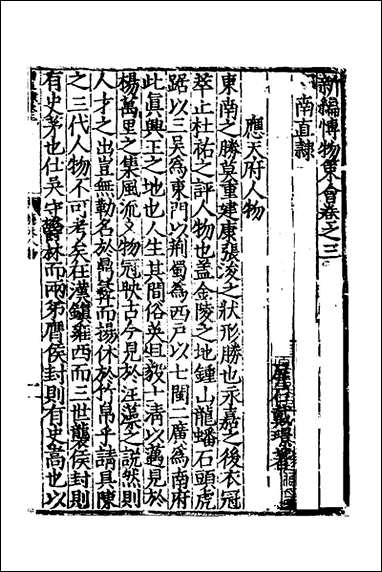 新編博物策會卷之三
南直隸
應天府人物
東南之勝莫重建康張浚之狀形勝也永嘉之後衣冠
萃止杜祐之評人物也盖金陵之地鍾山龍蟠石頭虎
踞以三吳為東門以荆蜀為西戶以七閩二廣為南府
此真興王之地也人生其間俗並且毅士清以邁見於
楊萬里之集風流文物冠映古今見於汪藻之説然則
人才之出豈無勒名於鼎彝而揚休於竹帛乎請具陳
之三代人物不可考矣在漢鎮雍西而三世襲侯封則
有史茅也仕吳守鬱林而兩弟膺侯封則有史嵩也以